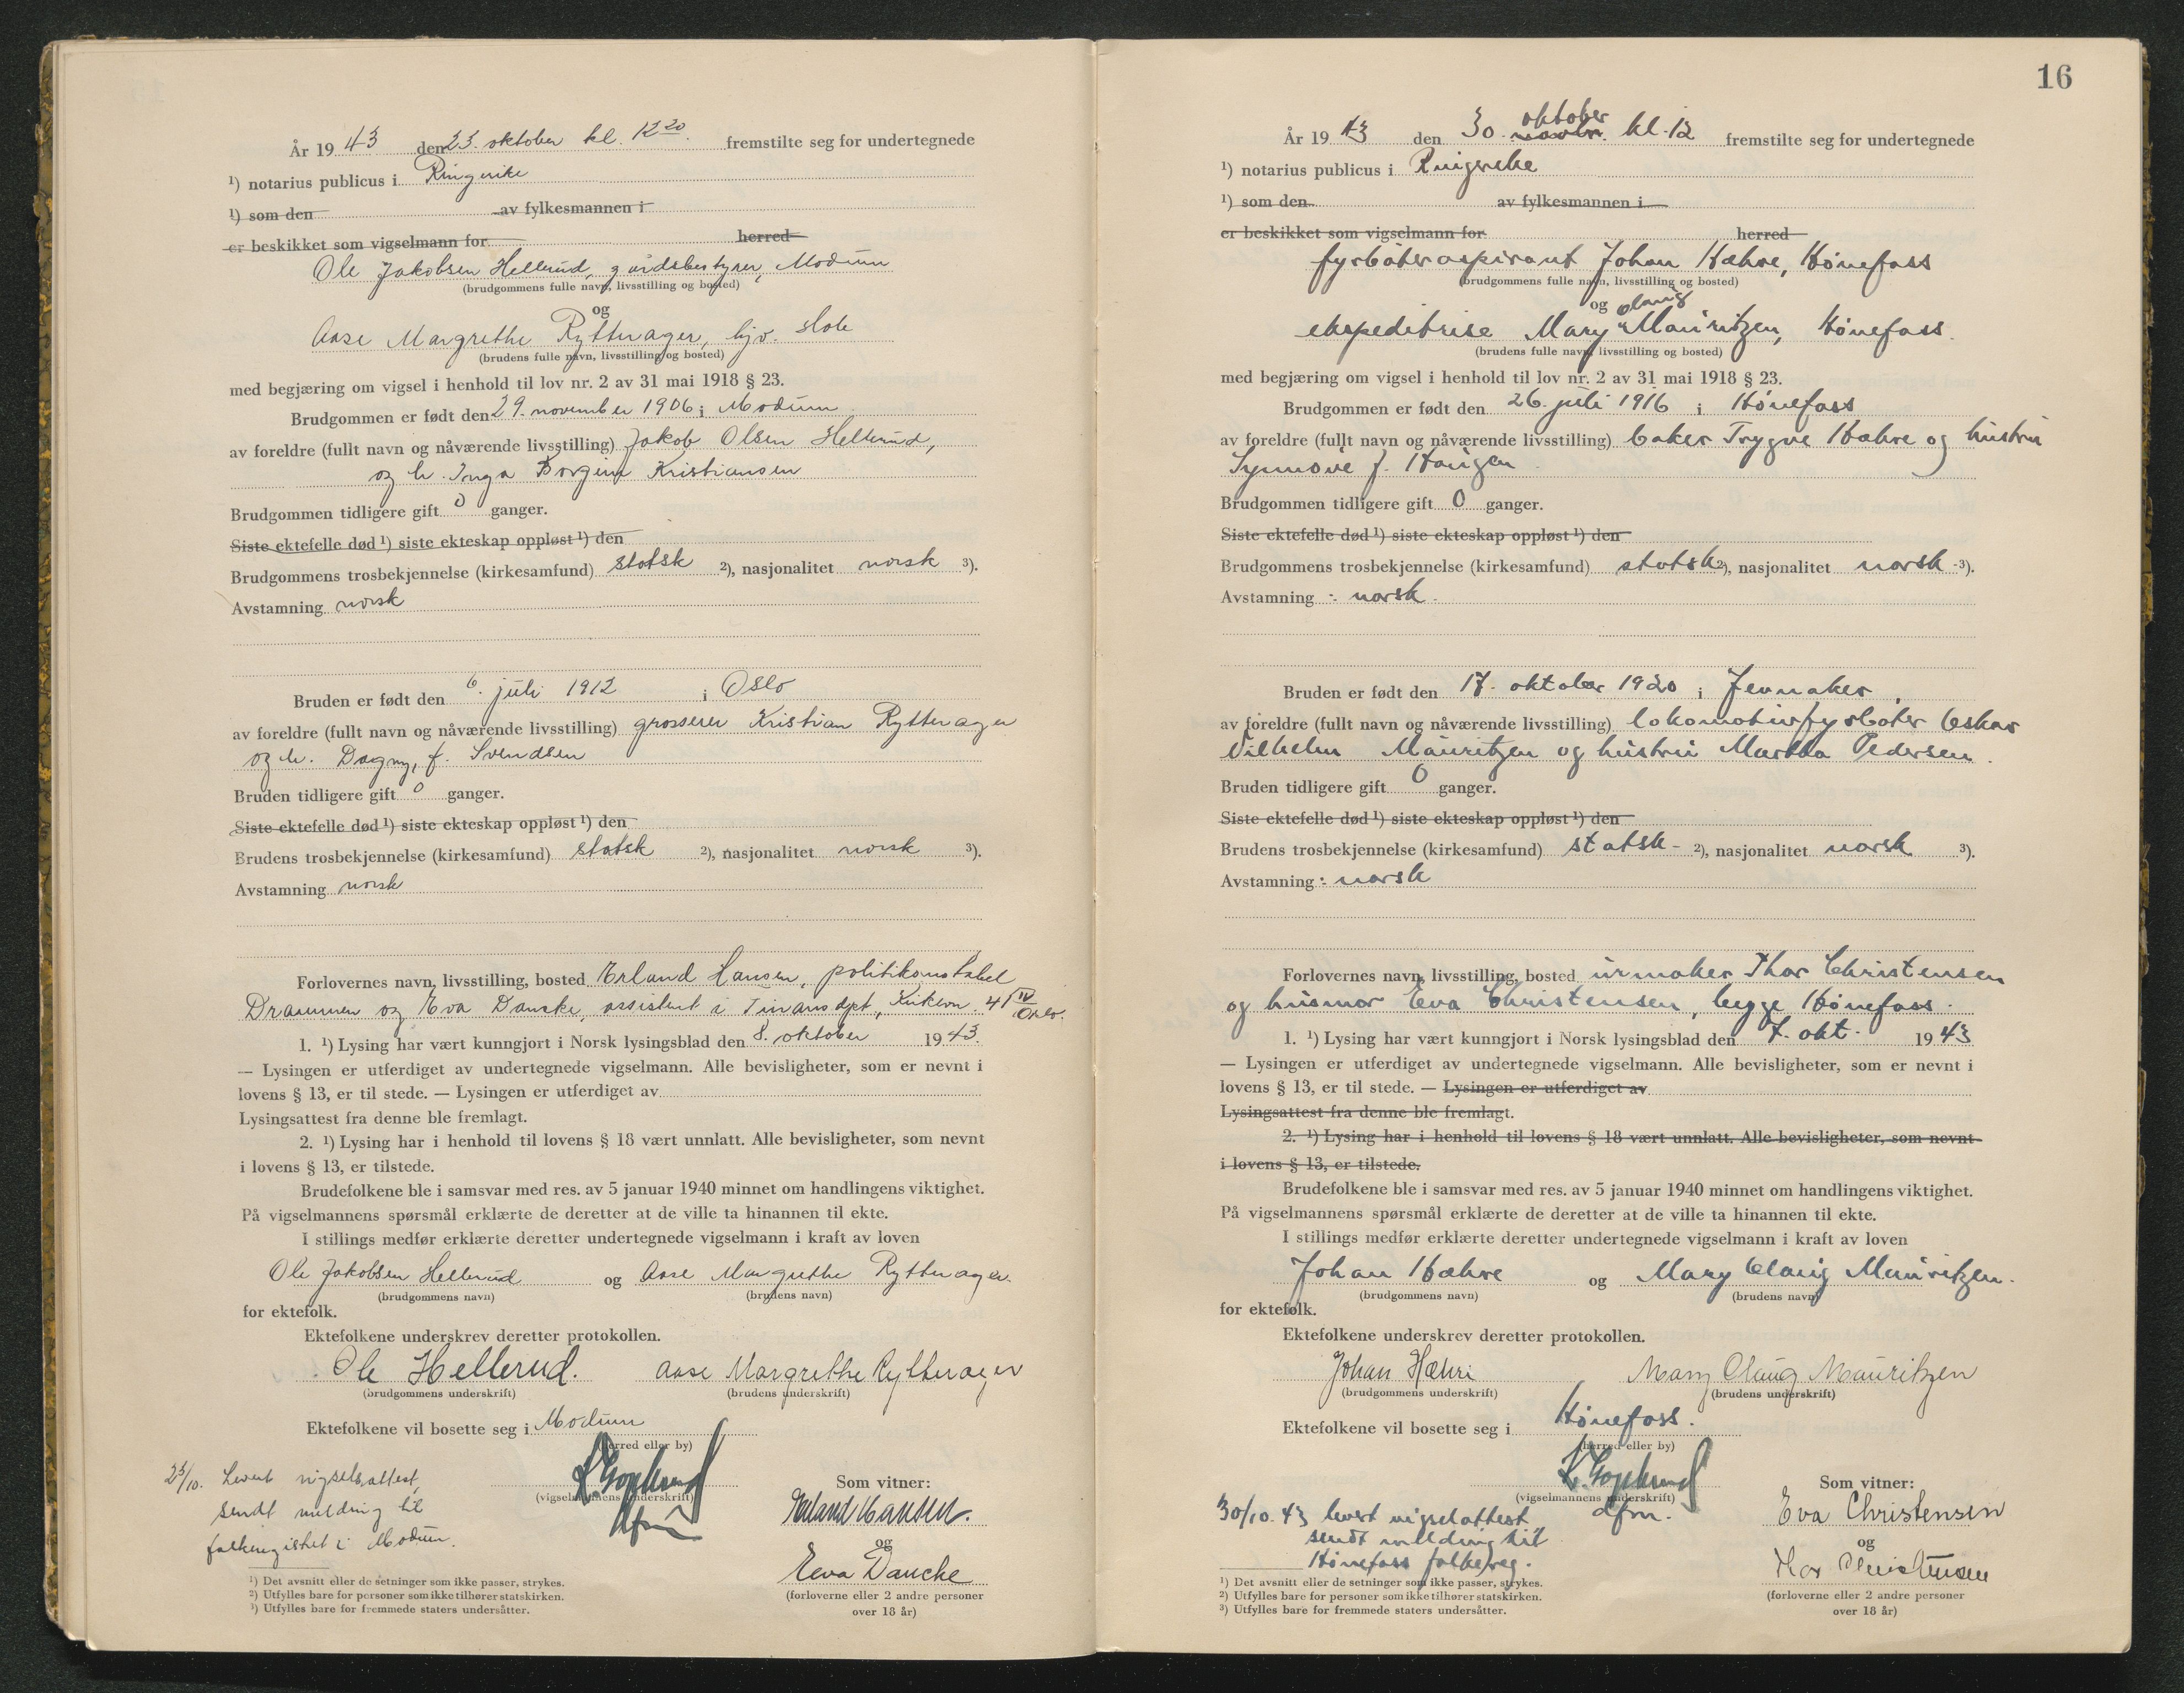 År 1943 den 23. oktober kl. 12²⁰. fremstilte seg for undertegnede
¹) notarius publicus i Ringerike
¹) som den av fylkesmannen i
er beskikket som vigselmann for herred
Ole Jakobsen Hellerud, gårdsbestyrer, Modum
(brudgommens fulle navn, livsstilling og bosted)
og
Aase Margrethe Rytterager,
(brudens fulle navn, livsstilling og bosted)
med begjæring om vigsel i henhold til lov nr. 2 av 31 mai 1918 § 23.
Brudgommen er født den 29. november 1906 i Modum
av foreldre (fullt navn og nåværende livsstilling) Jakob Olsen Hellerud,
og h. Inga Borgine Kristiansen
Brudgommen tidligere gift 0 ganger.
Siste ektefelle død ¹) siste ekteskap oppløst ¹) den
Brudgommens trosbekjennelse (kirkesamfund) statsk ²), nasjonalitet norsk ³).
Avstamning norsk
Bruden er født den 6. juli 1912 i Oslo
av foreldre (fullt navn og nåværende livsstilling) grosserer Kristian Rytterager
og h. Dagny, f. Svendsen
Bruden tidligere gift 0 ganger.
Siste ektefelle død ¹) siste ekteskap oppløst ¹) den
Brudens trosbekjennelse (kirkesamfund) statsk ²), nasjonalitet norsk ³).
Avstamning norsk
Forlovernes navn, livsstilling, bosted Erland Hansen, politikonstabel
Drammen og Eva Dancke, assistent i Finansdept, Kirkevn. 41 IV Oslo.
1. ¹) Lysing har vært kunngjort i Norsk lysingsblad den 8. oktober 1943.
— Lysingen er utferdiget av undertegnede vigselmann. Alle bevisligheter, som er nevnt i
lovens § 13, er til stede. — Lysingen er utferdiget av
Lysingsattest fra denne ble fremlagt.
2. ¹) Lysing har i henhold til lovens § 18 vært unnlatt. Alle bevisligheter, som nevnt
i lovens § 13, er tilstede.
Brudefolkene ble i samsvar med res. av 5 januar 1940 minnet om handlingens viktighet.
På vigselmannens spørsmål erklærte de deretter at de ville ta hinannen til ekte.
I stillings medfør erklærte deretter undertegnede vigselmann i kraft av loven
Ole Jakobsen Hellerud og Aase Margrethe Rytterager.
(brudgommens navn) (brudens navn)
for ektefolk.
Ektefolkene underskrev deretter protokollen.
Ole Hellerud. Aase Margrethe Rytterager
(brudgommens underskrift) (brudens underskrift)
Ektefolkene vil bosette seg i Modum
(herred eller by)
(vigselmannens underskrift)
dfm
23/10. Levert vigselsattest,
sendt melding til
folkeregistret i Modum.
Som vitner:
Erland Hansen.
og
Eva Dancke
(forloverne eller 2 andre personer
over 18 år)
¹) Det avsnitt eller de setninger som ikke passer, strykes.
²) Utfylles bare for personer som ikke tilhører statskirken.
³) Utfylles bare for fremmede staters undersåtter.
16
År 1943 den 30. oktober kl. 12 fremstilte seg for undertegnede
¹) notarius publicus i Ringerike
¹) som den av fylkesmannen i
er beskikket som vigselmann for herred
fyrbøteraspirant Johan Hæhre, Hønefoss
(brudgommens fulle navn, livsstilling og bosted)
og
ekspeditrise Mary Olaug Mauritzen, Hønefoss.
(brudens fulle navn, livsstilling og bosted)
med begjæring om vigsel i henhold til lov nr. 2 av 31 mai 1918 § 23.
Brudgommen er født den 26. juli 1916 i Hønefoss
av foreldre (fullt navn og nåværende livsstilling) baker Trygve Hæhre og hustru
Synnøve f. Haugen
Brudgommen tidligere gift 0 ganger.
Siste ektefelle død ¹) siste ekteskap oppløst ¹) den
Brudgommens trosbekjennelse (kirkesamfund) statsk ²), nasjonalitet norsk ³).
Avstamning : norsk.
Bruden er født den 17. oktober 1920 i Jevnaker.
av foreldre (fullt navn og nåværende livsstilling) lokomotivfyrbøter Oskar
Vilhelm Mauritzen og hustru Martha Pedersen.
Bruden tidligere gift 0 ganger.
Siste ektefelle død ¹) siste ekteskap oppløst ¹) den
Brudens trosbekjennelse (kirkesamfund) statsk - ²), nasjonalitet norsk ³).
Avstamning : norsk
Forlovernes navn, livsstilling, bosted urmaker Thor Christensen
og husmor Eva Christensen, begge Hønefoss.
1. ¹) Lysing har vært kunngjort i Norsk lysingsblad den 7. okt. 1943
— Lysingen er utferdiget av undertegnede vigselmann. Alle bevisligheter, som er nevnt i
lovens § 13, er til stede. — Lysingen er utferdiget av
Lysingsattest fra denne ble fremlagt.
2. ¹) Lysing har i henhold til lovens § 18 vært unnlatt. Alle bevisligheter, som nevnt
i lovens § 13, er tilstede.
Brudefolkene ble i samsvar med res. av 5 januar 1940 minnet om handlingens viktighet.
På vigselmannens spørsmål erklærte de deretter at de ville ta hinannen til ekte.
I stillings medfør erklærte deretter undertegnede vigselmann i kraft av loven
Johan Hæhre og Mary Olaug Mauritzen.
(brudgommens navn) (brudens navn)
for ektefolk.
Ektefolkene underskrev deretter protokollen.
Johan Hæhre Mary Olaug Mauritzen
(brudgommens underskrift) (brudens underskrift)
Ektefolkene vil bosette seg i Hønefoss.
(herred eller by)
(vigselmannens underskrift)
dfm.
30/10.43 levert vigselattest
sendt melding til
Hønefoss folkereg.
Som vitner:
Eva Christensen
og
Thor Christensen
(forloverne eller 2 andre personer
over 18 år)
¹) Det avsnitt eller de setninger som ikke passer, strykes.
²) Utfylles bare for personer som ikke tilhører statskirken.
³) Utfylles bare for fremmede staters undersåtter.